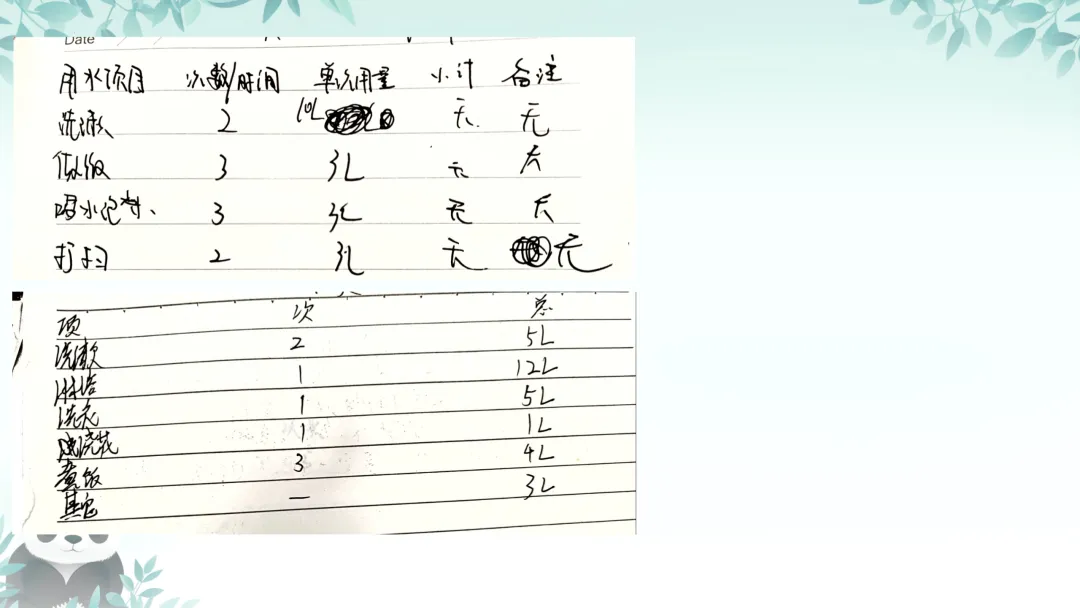 Date
用水项目 次数/时间 单次用量 小计 备注
洗漱 2 10L 无 无
做饭 3 3L 无 无
喝水泡 3 3L 无 无
打扫 2 3L 无 无
项 次 总
洗漱 2 5L
淋浴 1 12L
洗衣 1 5L
浇花 1 1L
煮饭 3 4L
其它 — 3L